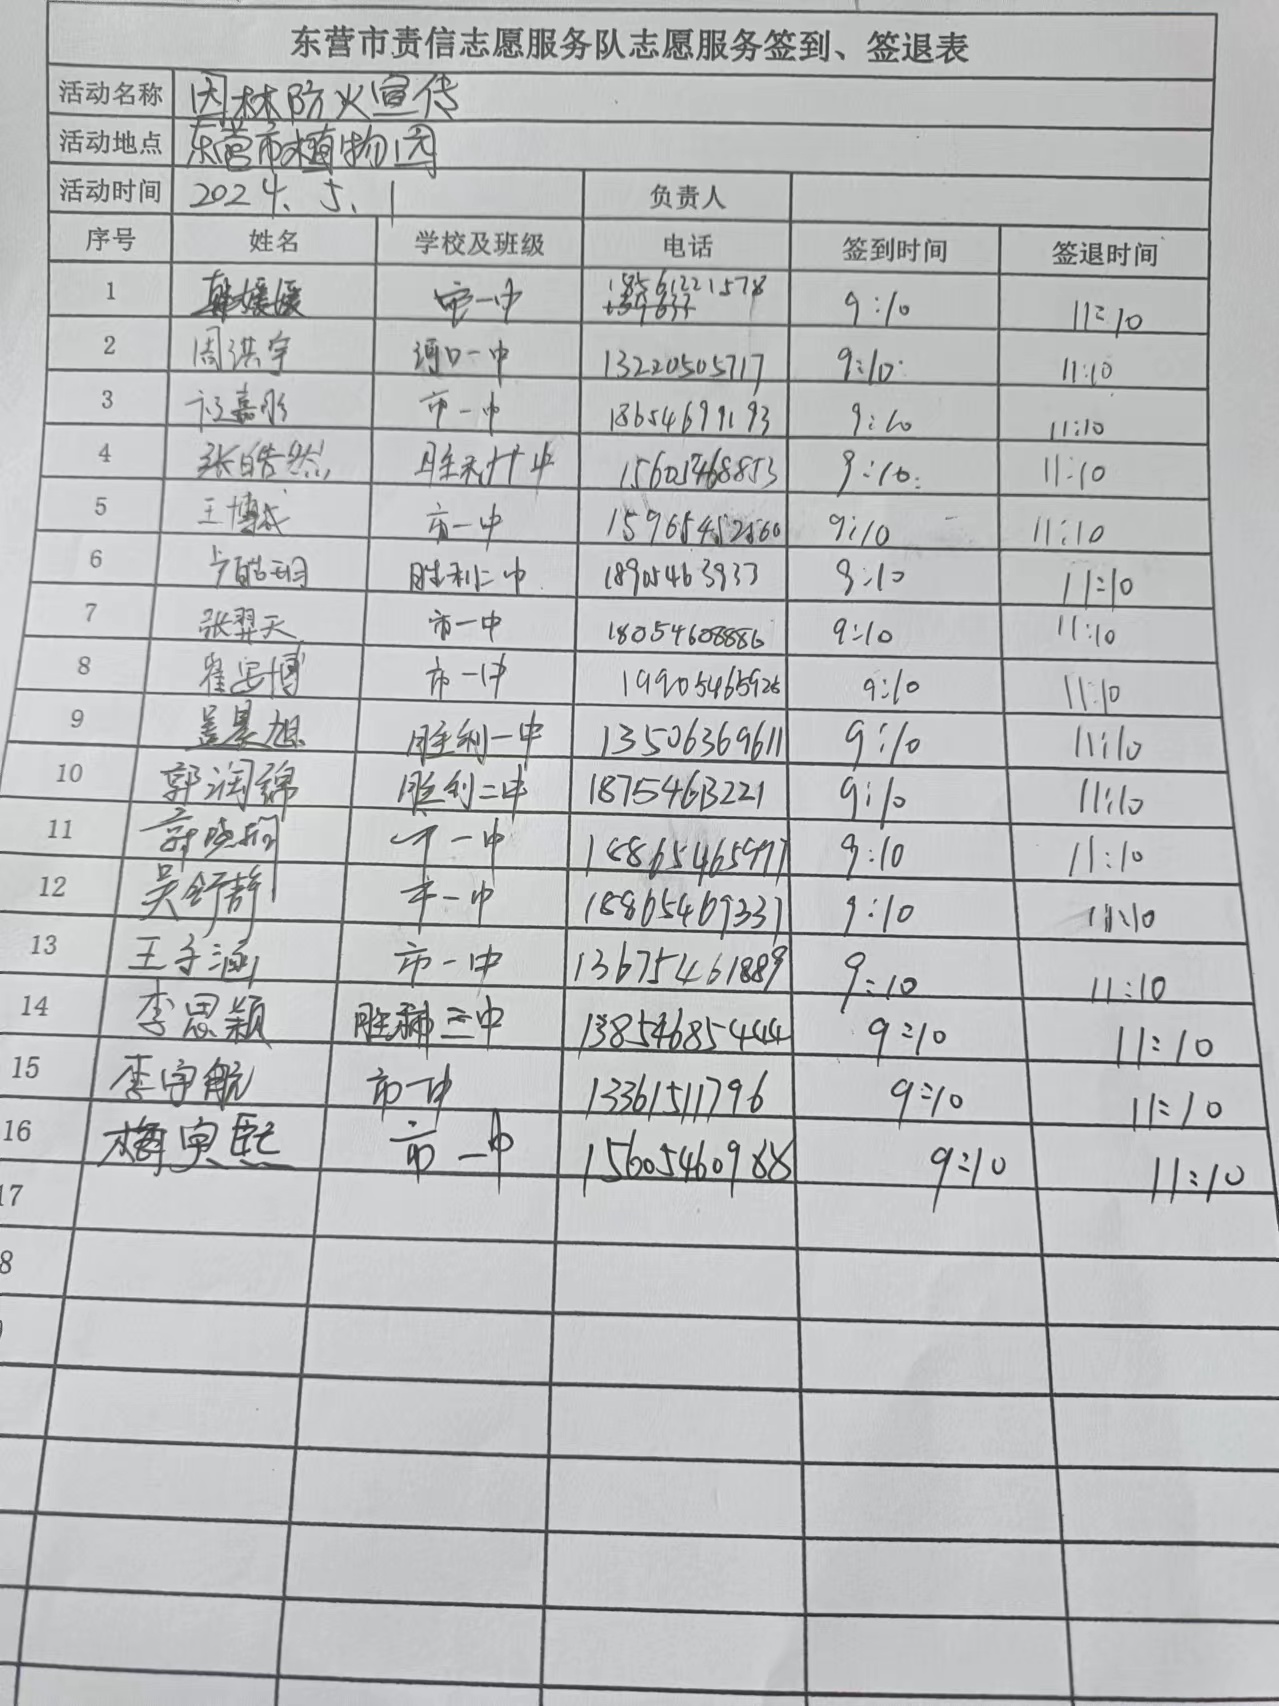 东营市责信志愿服务队志愿服务签到、签退表
活动名称 园林防火宣传
活动地点 东营市植物园
活动时间 2024.5.1 负责人
序号 姓名 学校及班级 电话 签到时间 签退时间
1 韩媛媛 市一中 18561221578 9:10 11:10
2 周洪宇 河口一中 13220505717 9:10 11:10
3 嘉彤 市一中 18654699193 9:10 11:10
4 张皓然 胜利十中 15605468853 9:10 11:10
5 王博 市一中 15965452560 9:10 11:10
6 胜利二中 18905463933 9:10 11:10
7 张羿天 市一中 18054608886 9:10 11:10
8 崔 博 市一中 19905465926 9:10 11:10
9 盖昊旭 胜利一中 13506369611 9:10 11:10
10 郭润锦 胜利二中 18754613221 9:10 11:10
11 一中 18865465977 9:10 11:10
12 吴舒静 市一中 18865469337 9:10 11:10
13 王子涵 市一中 13675461889 9:10 11:10
14 李思颖 胜利三中 13854685444 9:10 11:10
15 李宇航 市一中 13361511796 9:10 11:10
16 梅寅熙 市一中 15605460988 9:10 11:10
17
8